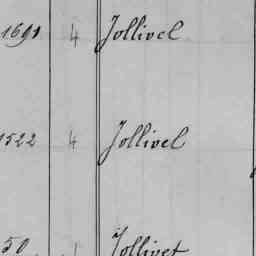 1691 4 Jollivel
1522 4 Jollivel
50 1 Jollivet